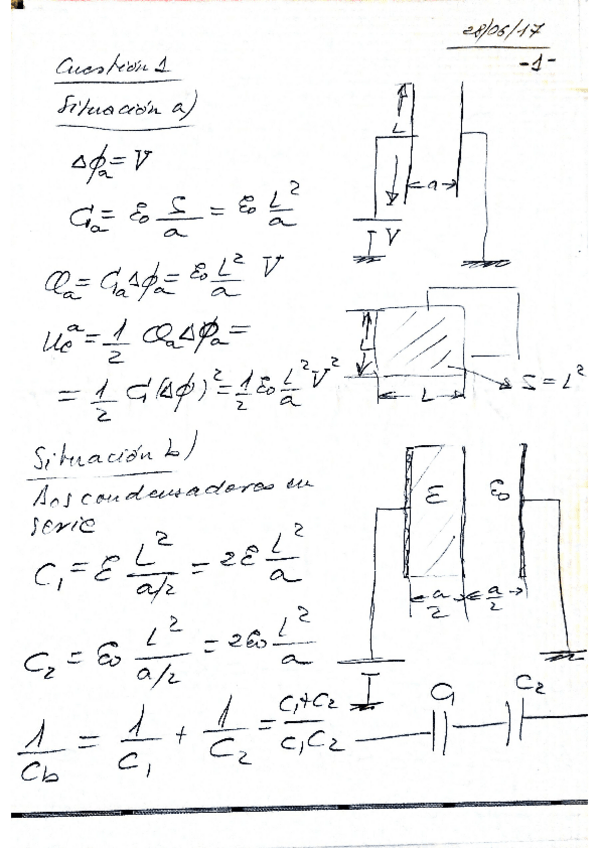 28/06/17
-1-
Cuestión 1
Situación a)
Δϕₐ = V
Cₐ = ε₀ S/a = ε₀ L²/a
Qₐ = CₐΔϕₐ = ε₀ L²/a V
Uₑᵃ = 1/2 QₐΔϕₐ =
= 1/2 C(Δϕ)² = 1/2 ε₀ L²/a V²
L
a
V
L
L
S = L²
Situación b)
Dos condensadores en
serie
C₁ = ε L²/(a/2) = 2ε L²/a
C₂ = ε₀ L²/(a/2) = 2ε₀ L²/a
1/Cb = 1/C₁ + 1/C₂ = C₁+C₂/C₁C₂
ε
ε₀
a/2
a/2
C₁
C₂